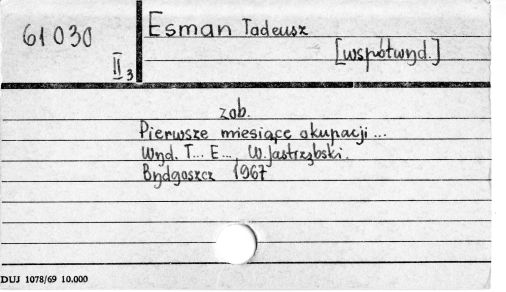 61030
II 3
Esman Tadeusz
[współwyd.]
zob.
Pierwsze miesiące okupacji ...
Wyd. T... E..., W. Jastrzębski.
Bydgoszcz 1967
DUJ 1078/69 10.000